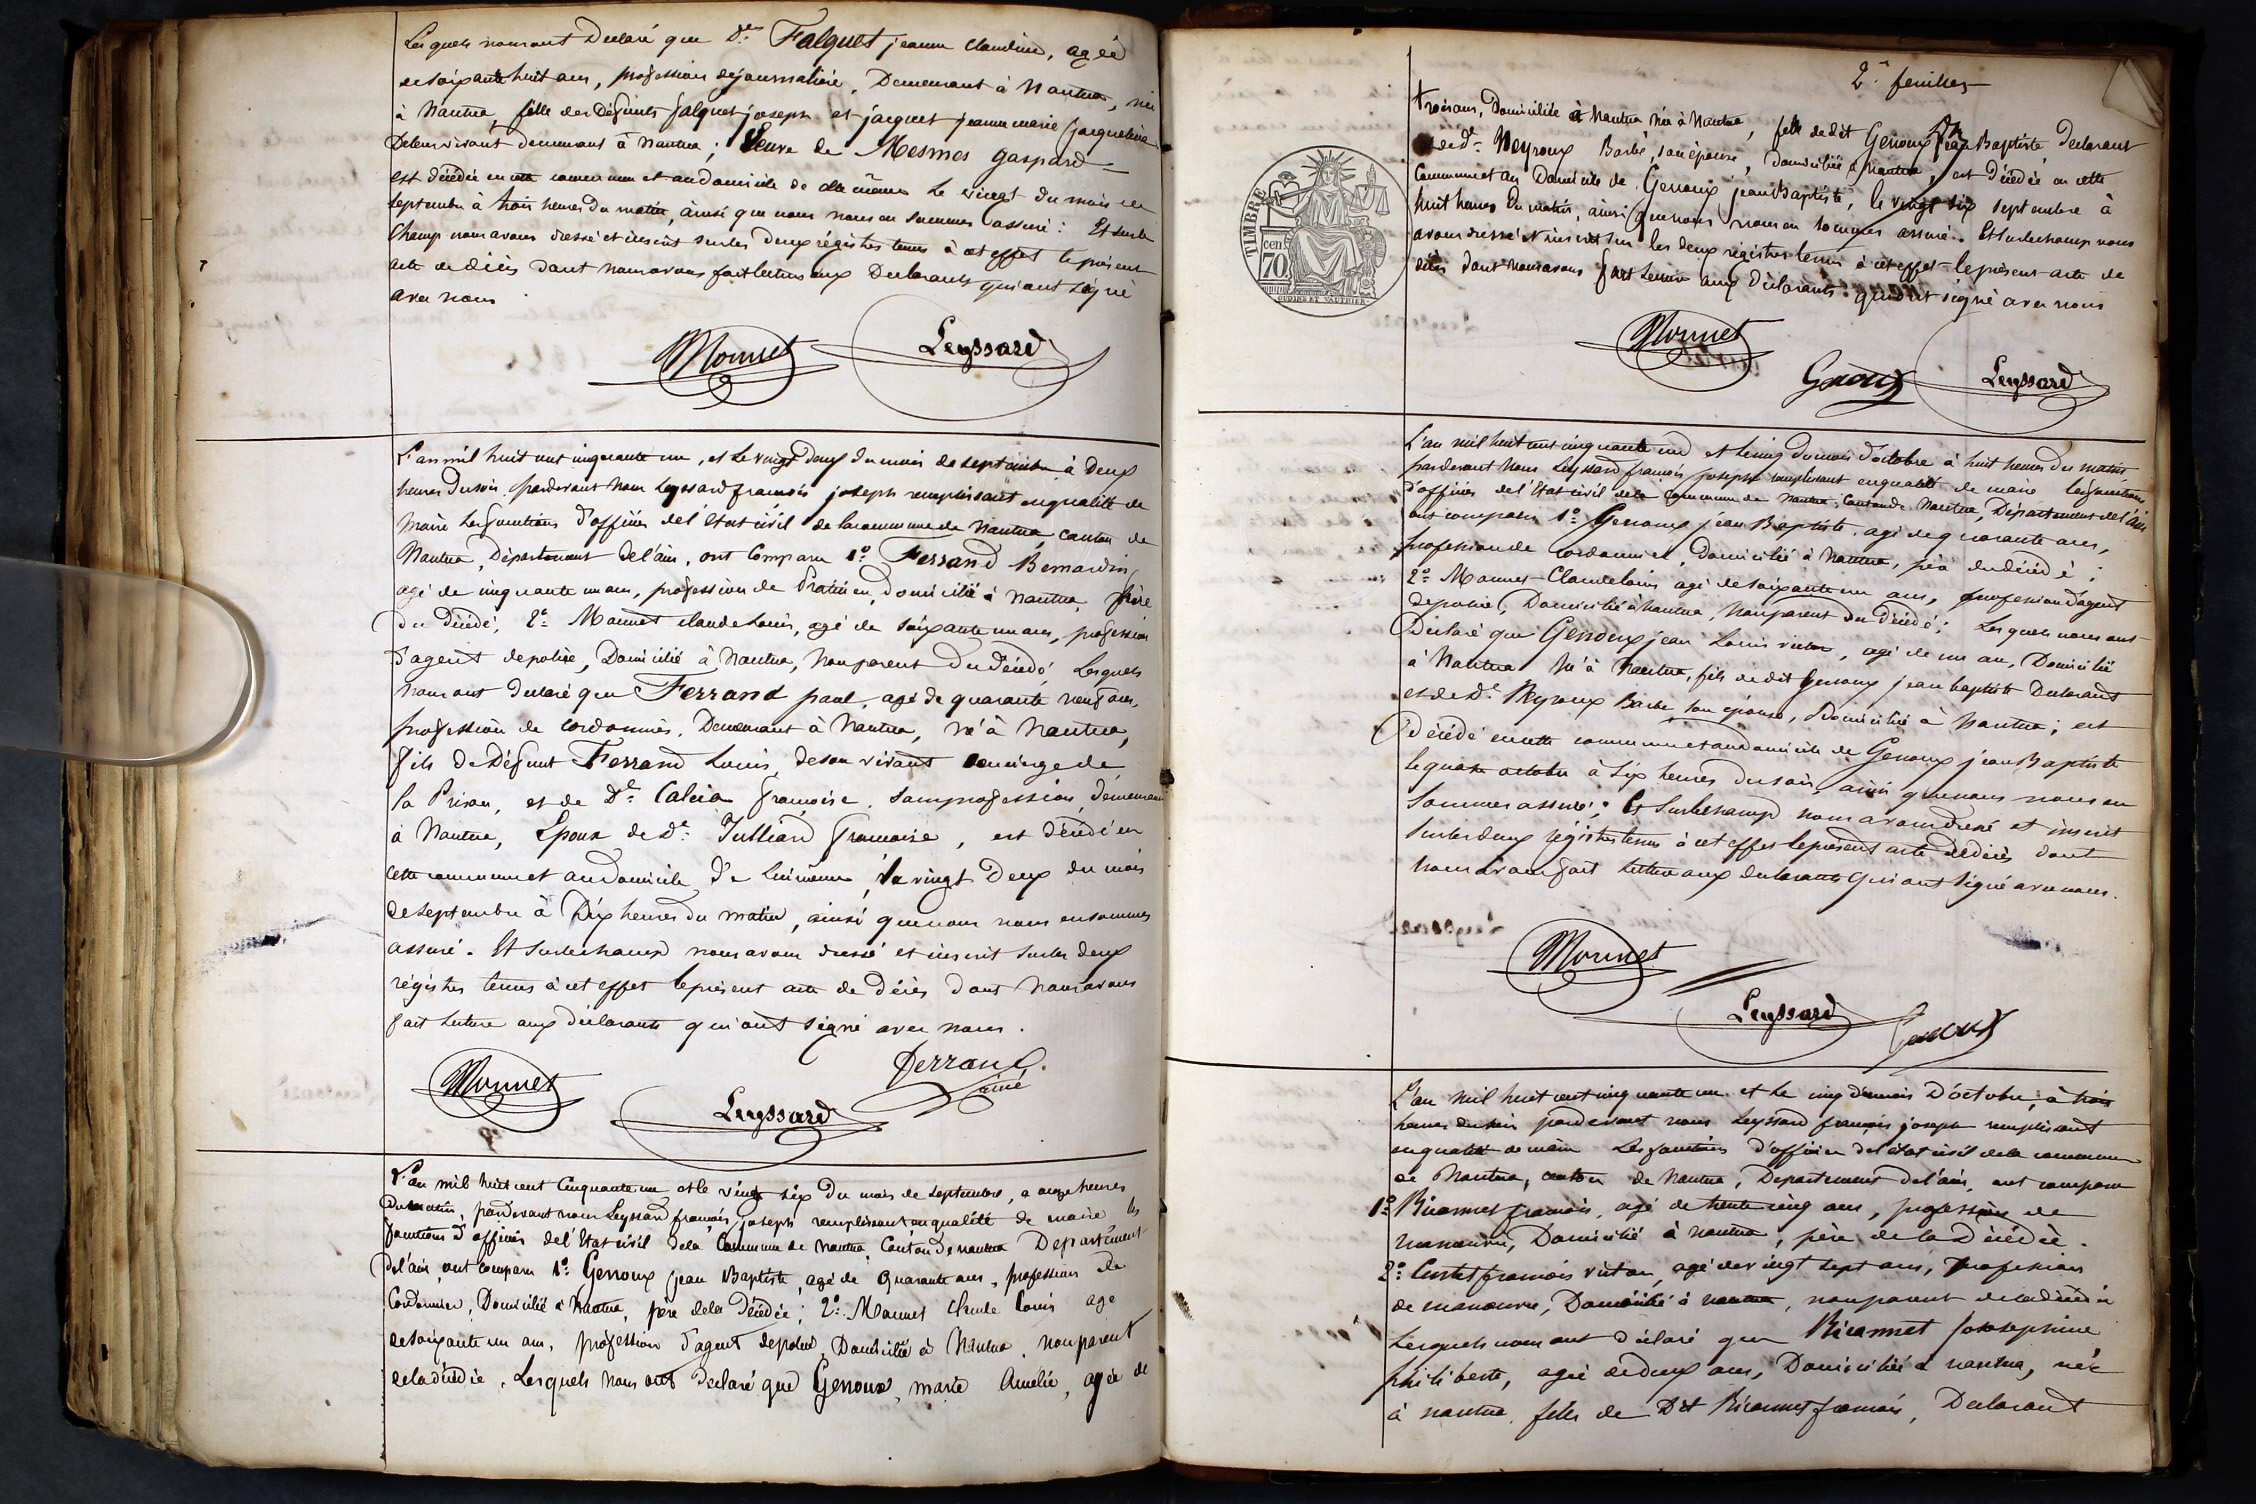 Lesquels nous ont Déclaré que De. Falquet jeanne Claudine, agée
de soixante huit ans, profession de journalière, Demeurant à Nantua, née
à Nantua, fille des Défunts falquet joseph et jacquet jeanne marie
De leur vivant demeurant à Nantua; Veuve de Mesmes gaspard
est décédée en cette commune et au domicile de elle même le vingt du mois de
septembre à trois heures du matin, ainsi que nous nous en sommes assuré: Et sur le
Champ nous avons dressé et inscrit sur les deux régistres tenus à cet effet le présent
acte de décès dont nous avons fait lecture aux Déclarants qui ont signé
avec nous
Monnet Leyssard
L'an mil huit cent cinquante un, et le vingt deux du mois de septembre à Deux
heures du soir, pardevant Nous Leyssard françois joseph remplissant en qualité de
Maire Les fonctions d'officier de l'état civil de la commune de Nantua, canton de
Nantua, Département de l'ain, ont Comparu 1o Ferrand Bernardin
agé de cinquante un ans, profession de Praticien, domicilié à Nantua, frère
du décédé, 2o Monnet claude Louis, agé de soixante un ans, profession
d'agent de police, Domicilié à Nantua, non parent du décédé, Lesquels
nous ont déclaré que Ferrand paul, agé de quarante neuf ans,
profession de cordonnier, Demeurant à Nantua, né à Nantua,
fils de Défunt Ferrand Louis, de son vivant concierge de
la Prison, et de De. Calcia françoise, sans profession, demeurant
à Nantua, Epoux de De. Julliard françoise, est décédé en
cette commune et au domicile de lui même, le vingt Deux du mois
de septembre à Dix heures du matin, ainsi que nous nous en sommes
assuré. Et sur le champ nous avons dressé et inscrit sur les deux
régistres tenus à cet effet le présent acte de décès dont Nous avons
fait lecture aux déclarants qui ont signé avec nous.
Monnet Leyssard Ferrand ainé
L'an mil huit cent Cinquante un et le vingt six Du mois de Septembre, a onze heures
Du matin, pardevant nous Leyssard françois joseph remplissant en qualité de maire les
fonctions d'officier de l'Etat civil de la Commune de Nantua, Canton de nantua Département
de l'ain, ont comparu 1o. Genoux jean Baptiste, agé de Quarante ans, profession de
Cordonnier, Domicilié à Nantua, père de la Décédée; 2o. Monnet Claude Louis agé
de soixante un ans, profession d'agent de police, Domicilié à Nantua, non parent
de la décédée. Lesquels Nous ont déclaré que Genoux, marie Amélie, agée de
2e. feuillet
trois ans, Domiciliée à Nantua Née à Nantua, fille de dit Genoux Jean Baptiste Déclarant
et de De. Neyroux Barbe, son épouse, domiciliée à Nantua, est Décédée en cette
Commune et au Domicile de Genoux jean Baptiste, le vingt six septembre à
huit heures Du matin, ainsi que nous nous en sommes assuré. Et sur le champ nous
avons dressé et inscrit sur les deux régistres tenus à cet effet le présent acte de
décès dont nous avons fait Lecture aux Déclarants qui ont signé avec nous
TIMBRE
cent.
70
Monnet Genoux Leyssard
L'an mil huit cent cinquante un et le cinq du mois d'octobre à huit heures du matin
pardevant Nous Leyssard françois joseph remplissant en qualité de maire les fonctions
d'officier de l'Etat civil de la Commune de Nantua, Canton de Nantua, Département de l'ain
ont comparu 1o. Genoux jean Baptiste, agé de quarante ans,
profession de cordonnier, Domicilié à Nantua, père du décédé;
2o. Monnet Claude Louis agé de soixante un ans, profession d'agent
de police, Domicilié à Nantua, Non parent du décédé; Lesquels nous ont
Déclaré que Genoux jean Louis victor, agé de un an, Domicilié
à Nantua Né à Nantua, fils de dit Genoux jean baptiste Déclarant
et de De. Neyroux Barbe son épouse, Domiciliée à Nantua; est
Décédé en cette commune et au domicile de Genoux jean Baptiste
le quatre octobre à Six heures du soir, ainsi que nous nous en
Sommes assuré; Et Sur le champ nous avons dressé et inscrit
sur les deux régistres tenus à cet effet le présent acte de décès dont
Nous avons fait lecture aux déclarants Qui ont signé avec nous.
Monnet Leyssard Genoux
L'an Mil huit cent cinquante un et le cinq du mois D'octobre, à trois
heures du soir pardevant nous Leyssard françois joseph remplissant
en qualité de maire Les fonctions d'officier de l'état civil de la commune
de Nantua, canton de Nantua, Département de l'ain, ont comparu
1o Ricannet françois, agé de trente cinq ans, profession de
manœuvre, Domicilié à nantua, père de la Décédée.
2o. françois victor, agé de vingt sept ans, Profession
de manœuvre, Domicilié à nantua, non parent de la décédée
Lesquels nous ont déclaré que Ricannet Josephine
philiberte, agée de deux ans, Domiciliée à nantua, née
à nantua, fille de Dit Ricannet françois, Déclarant